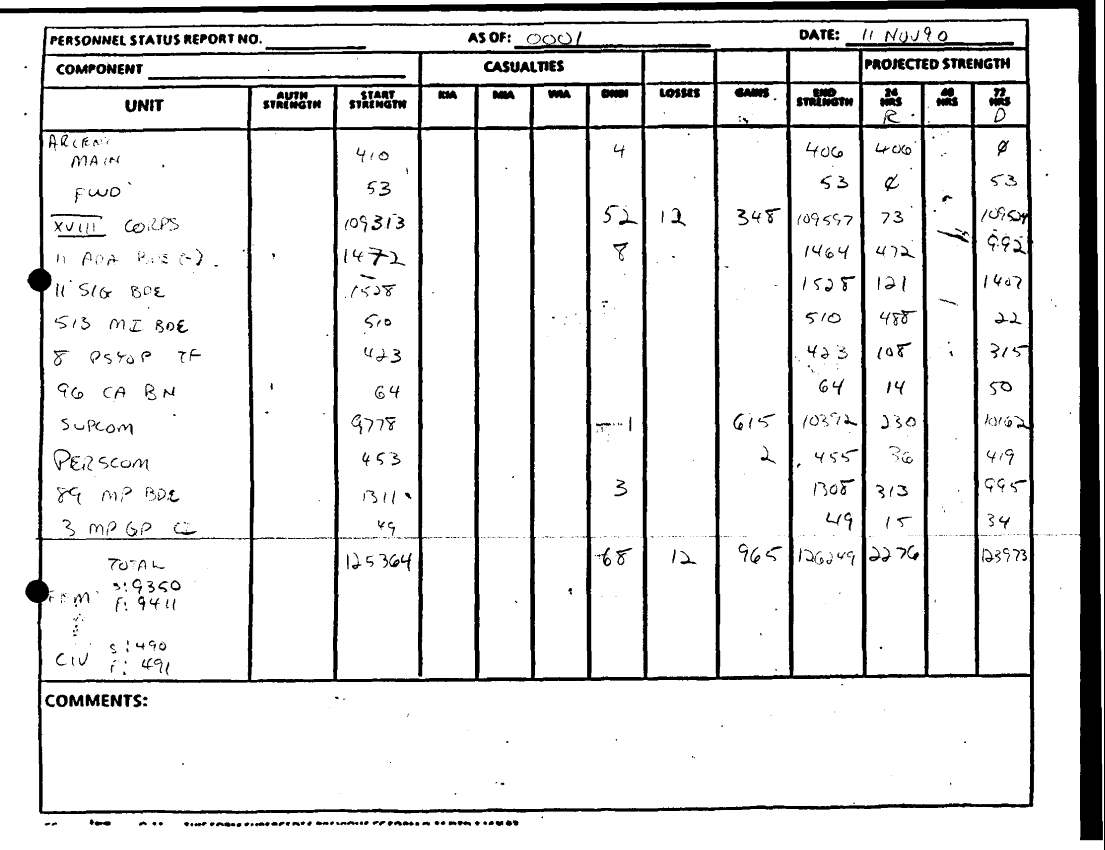 PERSONNEL STATUS REPORT NO. AS OF: 0001 DATE: 11 NOV 90
COMPONENT CASUALTIES PROJECTED STRENGTH
UNIT AUTH STRENGTH START STRENGTH KIA MIA WIA DNBI LOSSES GAINS END STRENGTH 24 HRS 48 HRS 72 HRS
R D
ARCENT
MAIN 410 4 406 406 Ø
FWD 53 53 Ø 53
XVIII CORPS 109313 52 12 348 109597 73 109524
11 ADA BDE (-) 1472 8 1464 472 992
11 SIG BDE 1528 1528 121 1407
513 MI BDE 510 510 488 22
8 PSYOP TF 423 423 108 315
96 CA BN 64 64 14 50
SUPCOM 9778 1 615 10392 230 10162
PERSCOM 453 2 455 36 419
89 MP BDE 1311 3 1308 313 995
3 MP GP CI 49 49 15 34
TOTAL 125364 68 12 965 126249 2276 123973
FEM S: 9350
F: 9411
CIV S: 490
F: 491
COMMENTS: